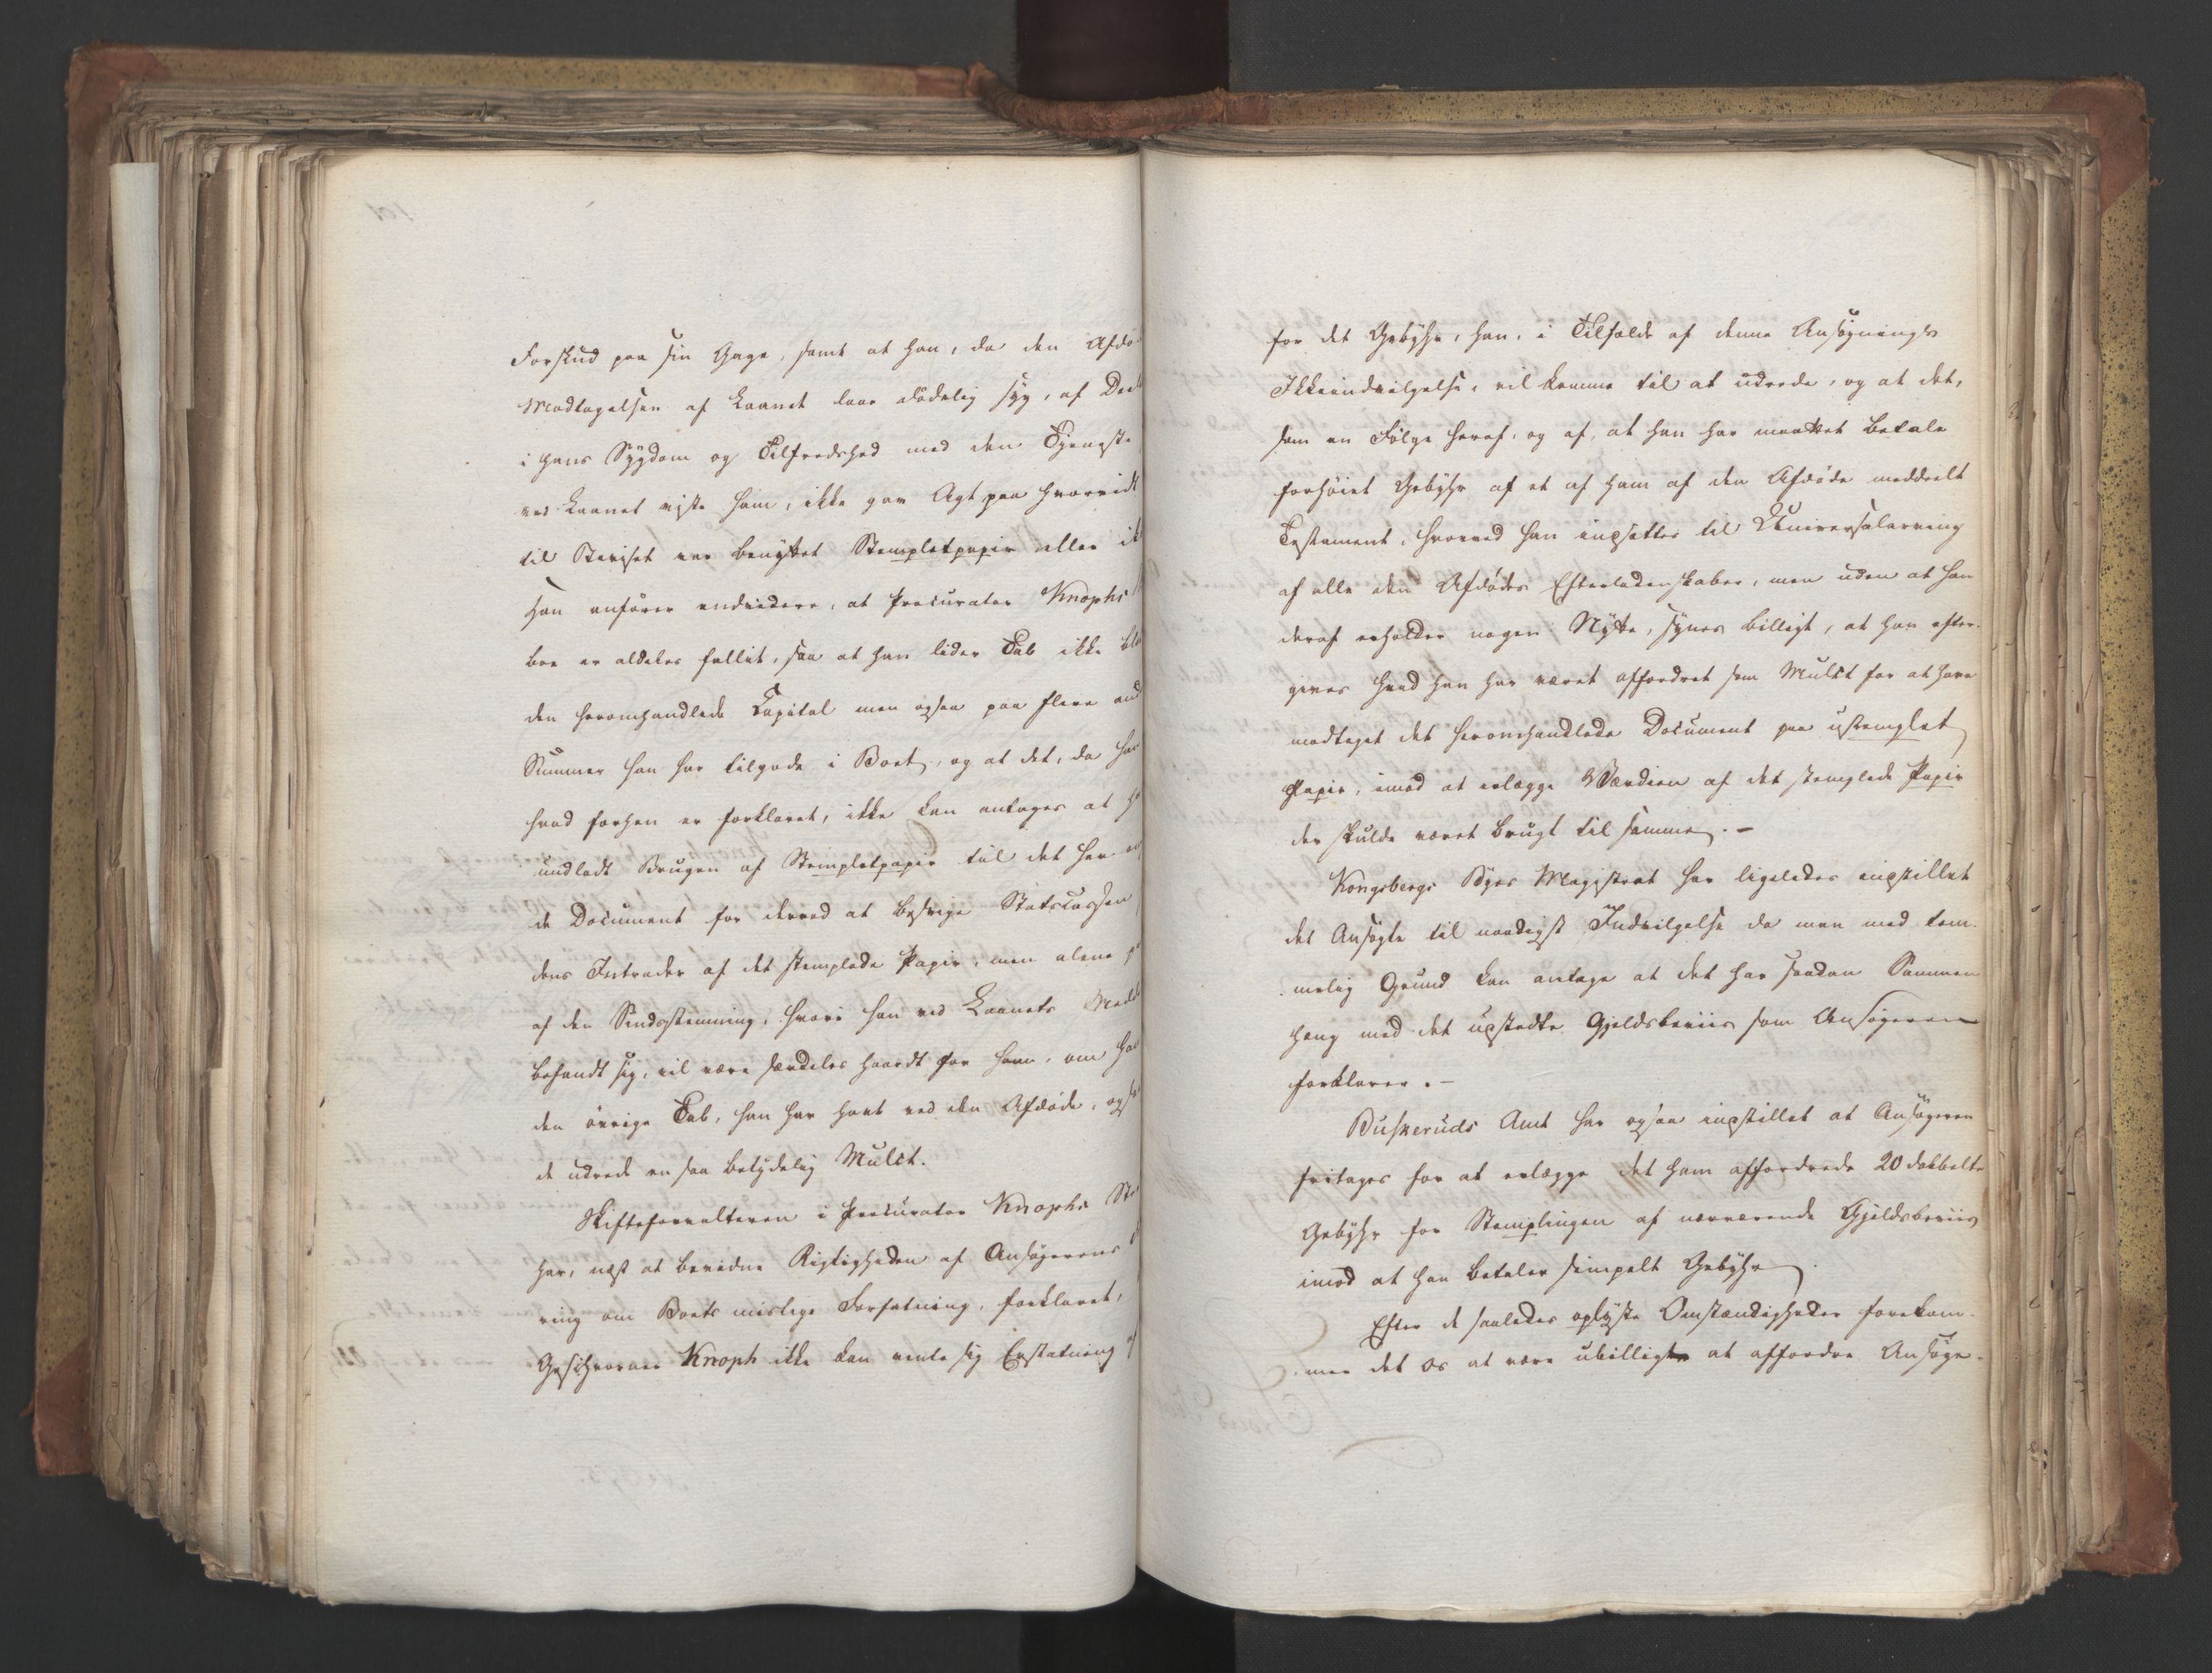 Forskud paa sin Gage, samt at han, da den Afdø
Modtagelsen af Laanet laae dödelig syg, af Deel
i hans Sygdom og Tilfredshed med den Tjeneste
ved Laanet viste ham, ikke gav Agt paa hvorvidt
til Beviset var benyttet Stempletpapir eller ik
Han anfører endvidere, at Procurator Knophs
Boe er aldeles fallit, saa at han lider Tab ikke blo
den heromhandlede Capital men ogsaa paa flere and
Summer han har tilgode i Boet, og at det, da han
hvad forhen er forklaret, ikke kan antages at h
undladt Brugen af Stempletpapir til det her
de Document for derved at besvige Statscassen
dens Intrader af det stemplede Papir, men alene
af den Sindsstemning, hvori han ved Laanets Medd
befandt sig, vil være særdeles haardt for ham, om han
den øvrige Tab, han har havt ved den Afdøde, ogsa
de udrede en saa betydelig Mulct.
Skifteforvalteren i Procurator Knophs
har, næst at bevidne Rigtigheden af Ansøgerens
ring om Boets mislige Forfatning, forklaret,
Geschworner Knoph ikke kan vente sig Erstatning
for det Gebyhr, han, i Tilfælde af denne Ansøgnings
Ikkeindvilgelse, vil komme til at udrede, og at det,
som en Følge heraf, og af, at han har maattet betale
forhøiet Gebyhr af et af ham af den Afdøde meddeelt
Testament, hvorved han indsættes til Universalarving
af alle den Afdødes Efterladenskaber, men uden at han
deraf erholder nogen Nytte, synes billigt, at han efter-
gives hvad han har været affordret som Mulct for at have
modtaget det heromhandlede Document paa ustemplet
Papir, imod at erlægge Værdien af det stemplede Papir
der skulde været brugt til samme. -
Kongsbergs Byes Magistrat har ligeledes indstillet
det Ansøgte til naadigst Indvilgelse da man med tem-
melig Grund kan antage at det har saadan Sammen
hæng med det udstedte Gjeldsbeviis som Ansøgeren
forklarer. -
Buskeruds Amt har ogsaa indstillet at Ansøgeren
fritages for at erlægge det ham affordrede 20 dobbelte
Gebyhr for Stemplingen af nærværende Gjeldsbeviis
imod at han betaler simpelt Gebyhr.
Efter de saaledes oplyste Omstændigheder forekom-
mer det os at være ubilligt at affordre Ansøge-